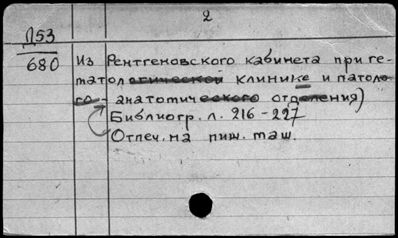 2
Д53
680
Из Рентгеновского кабинета при ге-
матологической клинике и патоло
го-анатомического отделения)
Библиогр. л. 216-227
Отпеч. на пиш. маш.